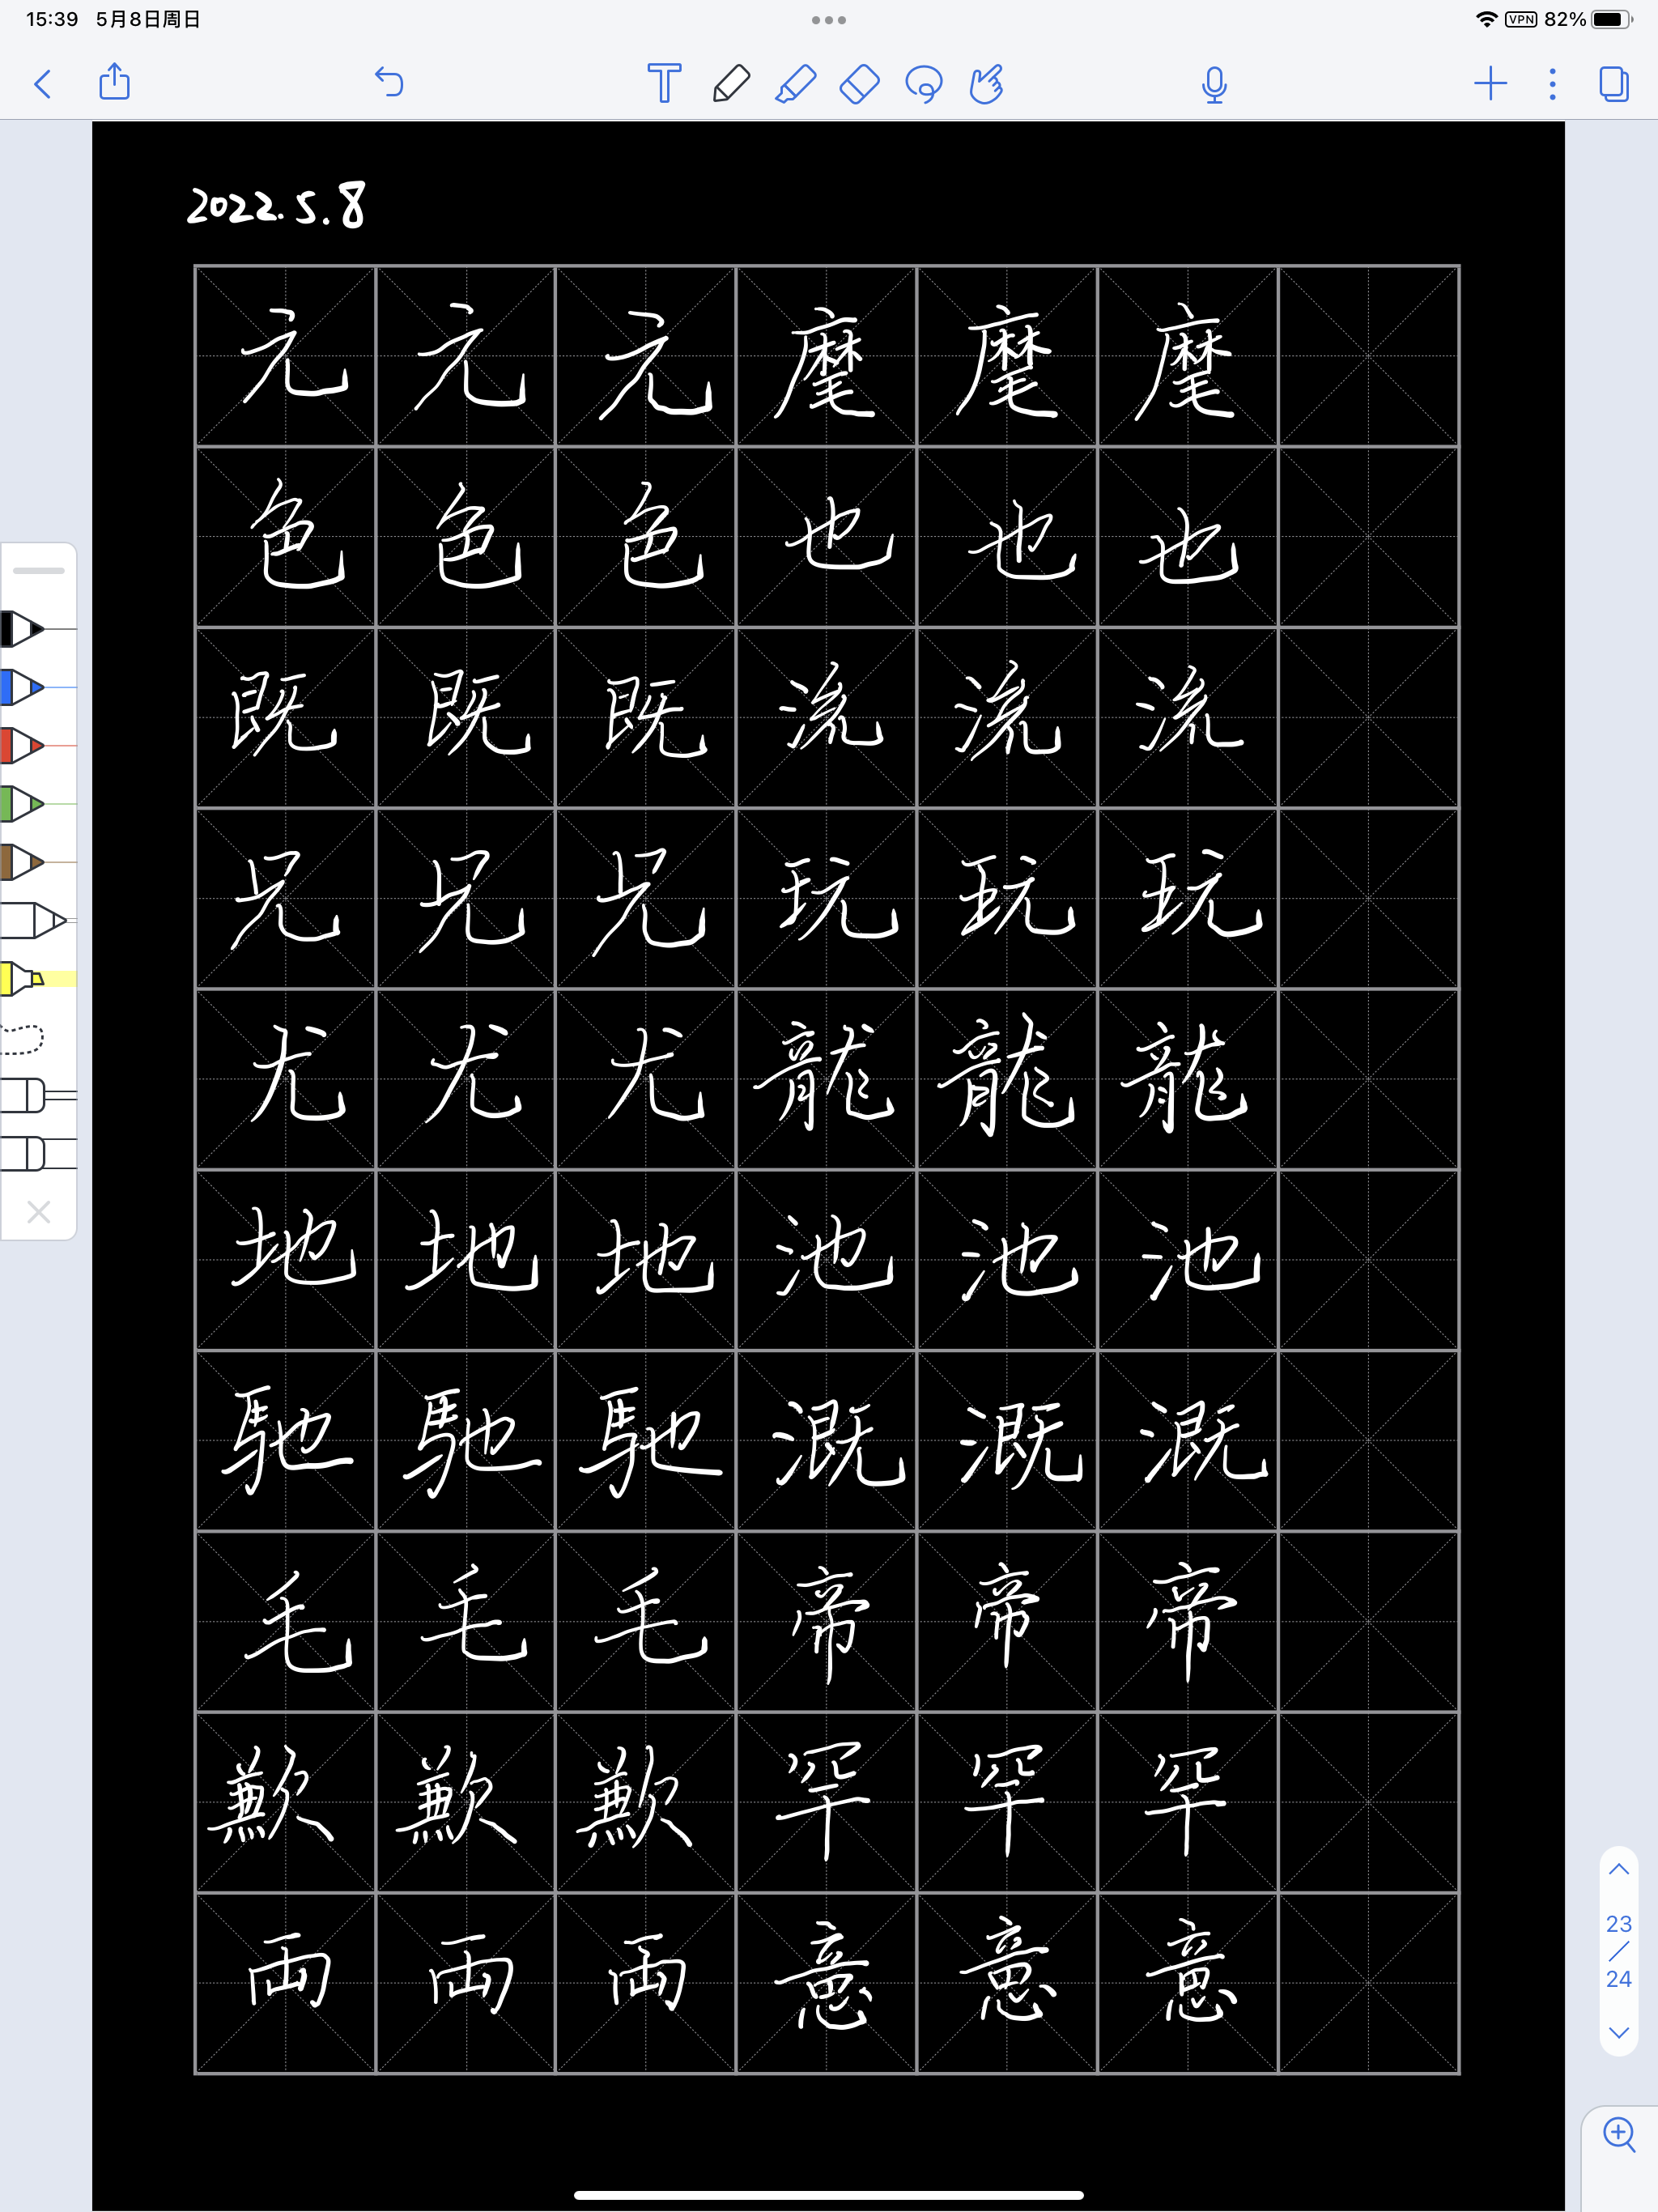 15:39 5月8日周日
VPN 82%
2022.5.8
元 元 元 麾 麾 麾
色 色 色 也 也 也
既 既 既 流 流 流
兄 兄 兄 玩 玩 玩
尤 尤 尤 龍 龍 龍
地 地 地 池 池 池
馳 馳 馳 溉 溉 溉
毛 毛 毛 帝 帝 帝
歉 歉 歉 罕 罕 罕
両 両 両 意 意 意
23
/
24